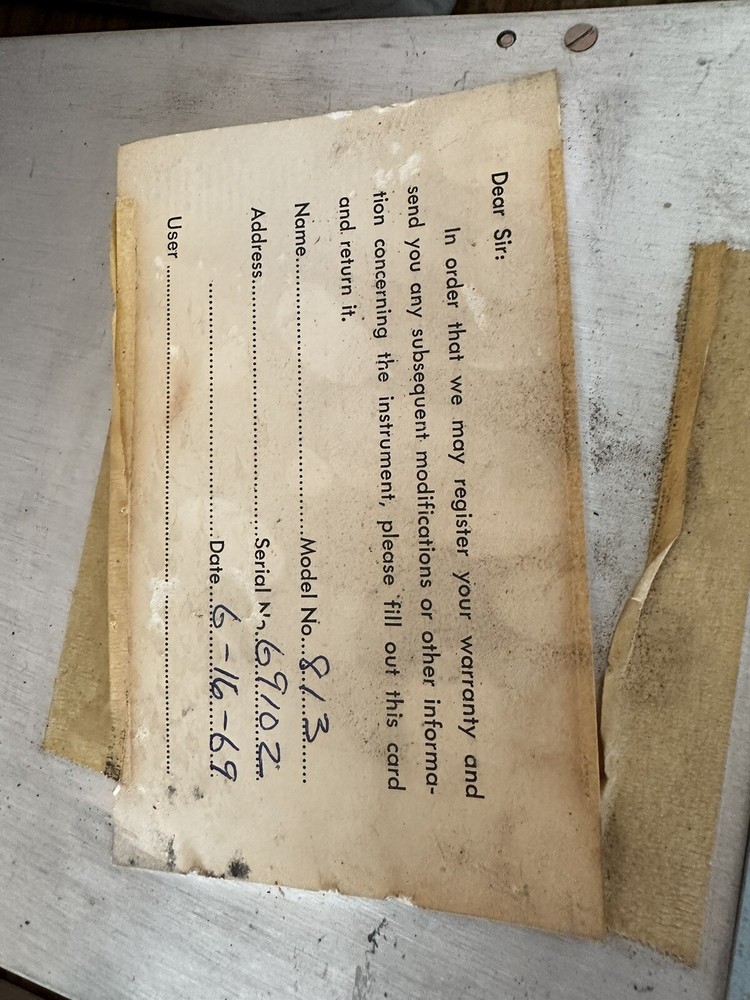 Dear Sir:
In order that we may register your warranty and
send you any subsequent modifications or other informa-
tion concerning the instrument, please fill out this card
and return it.
Name........................................Model No...813......
Address.....................................Serial No.69102.
.....................................Date...6-16-69
User ................................................................................